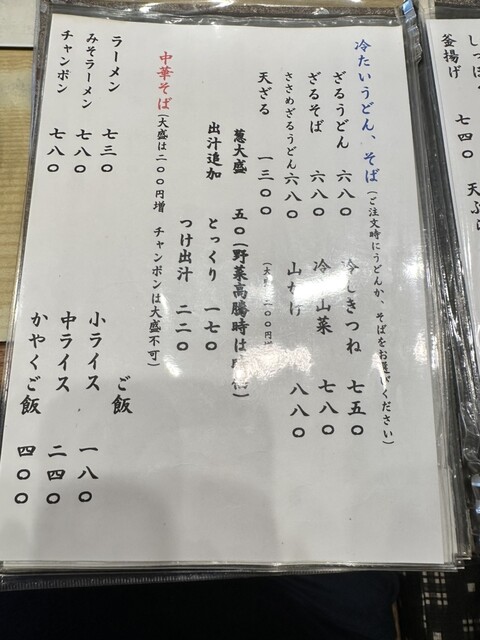 冷たいうどん、そば(ご注文時にうどんか、そばをお選びください)
ざるうどん 六八〇
ざるそば 六八〇
ささめざるうどん 六八〇
天ざる 一三〇〇
冷しきつね 七五〇
冷し山菜 七八〇
山かけ 八八〇
葱大盛 五〇(野菜高騰時は
出汁追加 とっくり 一七〇
つけ出汁 二二〇
中華そば(大盛は二〇〇円増 チャンポンは大盛不可)
ラーメン 七三〇
みそラーメン 七八〇
チャンポン 七八〇
ご飯
小ライス 一八〇
中ライス 二四〇
かやくご飯 四〇〇
釜揚げ 七四〇